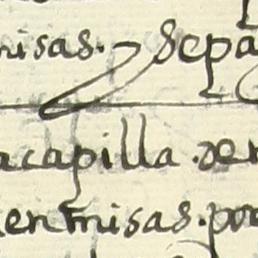 misas. sepa
acapilla. de
en misas. por